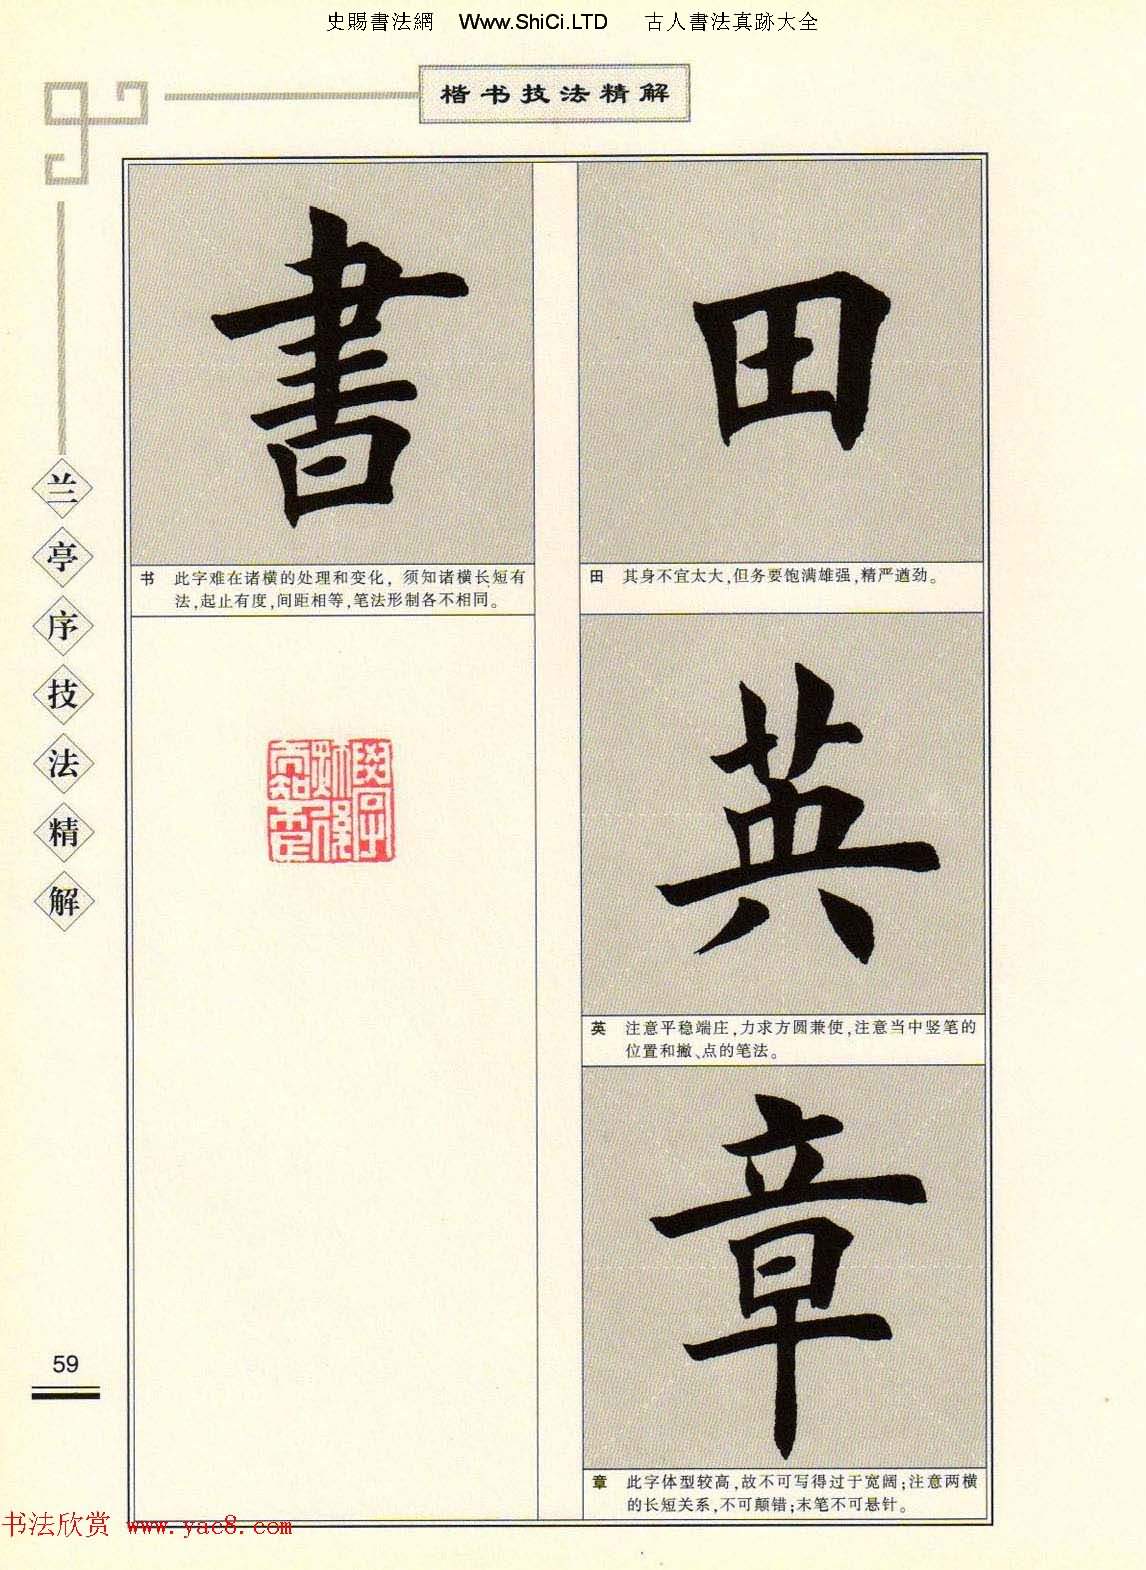 史賜書法網 Www.ShiCi.LTD 古人書法真跡大全
楷书技法精解
兰亭序技法精解
田
田 其身不宜太大,但务要饱满雄强,精严遒劲。
英
英 注意平稳端庄,力求方圆兼使,注意当中竖笔的
位置和撇、点的笔法。
章
章 此字体型较高,故不可写得过于宽阔;注意两横
的长短关系,不可颠错;末笔不可悬针。
書
书 此字难在诸横的处理和变化,须知诸横长短有
法,起止有度,间距相等,笔法形制各不相同。
59
书法欣赏 www.yac8.com